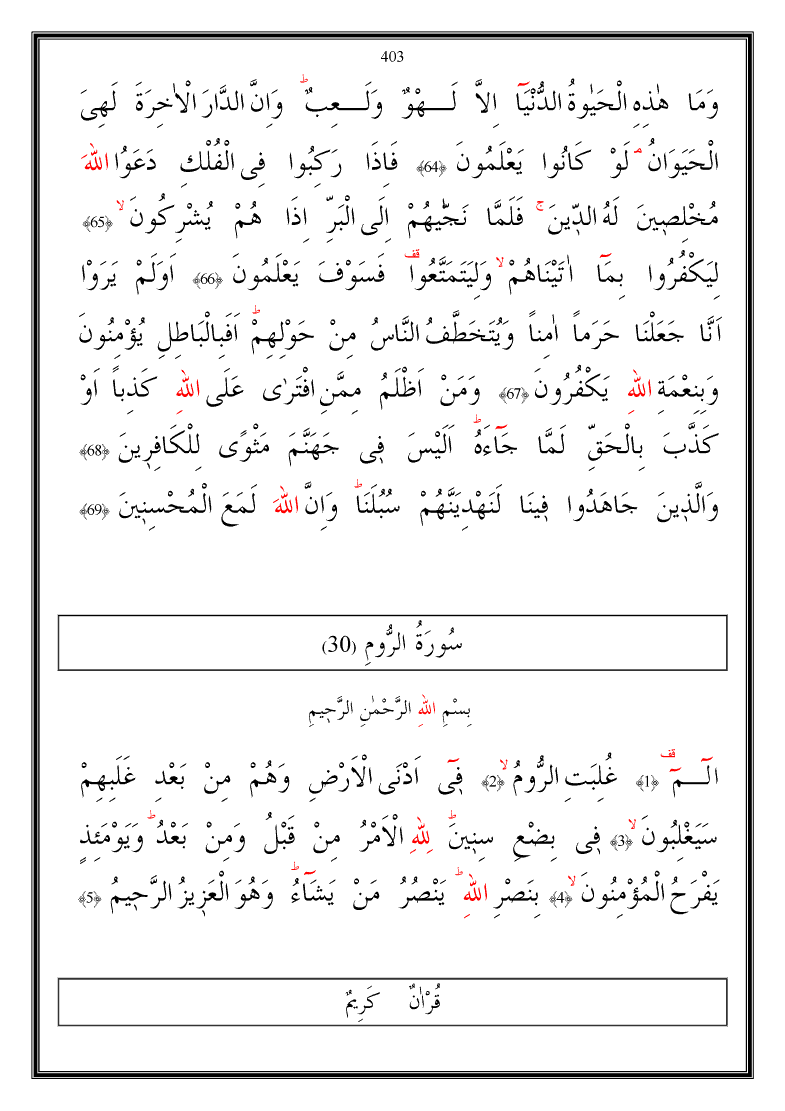 403
وَمَا هٰذِهِ الْحَيٰوةُ الدُّنْيَٓا اِلاَّ لَـــهْوٌ وَلَـــعِبٌ ؕ وَاِنَّ الدَّارَ الْاٰخِرَةَ لَهِىَ
الْحَيَوَانُ ۢ لَوْ كَانُوا يَعْلَمُونَ ﴿64﴾ فَاِذَا رَكِبُوا فِى الْفُلْكِ دَعَوُا اللّٰهَ
مُخْلِصٖينَ لَهُ الدّٖينَ ۚ فَلَمَّا نَجّٰيهُمْ اِلَى الْبَرِّ اِذَا هُمْ يُشْرِكُونَ ۙ ﴿65﴾
لِيَكْفُرُوا بِمَٓا اٰتَيْنَاهُمْ ۙ وَلِيَتَمَتَّعُوا ۠ فَسَوْفَ يَعْلَمُونَ ﴿66﴾ اَوَلَمْ يَرَوْا
اَنَّا جَعَلْنَا حَرَماً اٰمِناً وَيُتَخَطَّفُ النَّاسُ مِنْ حَوْلِهِمْ ؕ اَفَبِالْبَاطِلِ يُؤْمِنُونَ
وَبِنِعْمَةِ اللّٰهِ يَكْفُرُونَ ﴿67﴾ وَمَنْ اَظْلَمُ مِمَّنِ افْتَرٰى عَلَى اللّٰهِ كَذِباً اَوْ
كَذَّبَ بِالْحَقِّ لَمَّا جَٓاءَهُ ؕ اَلَيْسَ فٖى جَهَنَّمَ مَثْوًى لِلْكَافِرٖينَ ﴿68﴾
وَالَّذٖينَ جَاهَدُوا فٖينَا لَنَهْدِيَنَّهُمْ سُبُلَنَا ؕ وَاِنَّ اللّٰهَ لَمَعَ الْمُحْسِنٖينَ ﴿69﴾
سُورَةُ الرُّومِ (30)
بِسْمِ اللّٰهِ الرَّحْمٰنِ الرَّحٖيمِ
الٓـــمٓ ۠ ﴿1﴾ غُلِبَتِ الرُّومُ ۙ ﴿2﴾ فٖٓى اَدْنَى الْاَرْضِ وَهُمْ مِنْ بَعْدِ غَلَبِهِمْ
سَيَغْلِبُونَ ۙ ﴿3﴾ فٖى بِضْعِ سِنٖينَ ؕ لِلّٰهِ الْاَمْرُ مِنْ قَبْلُ وَمِنْ بَعْدُ ؕ وَيَوْمَئِذٍ
يَفْرَحُ الْمُؤْمِنُونَ ۙ ﴿4﴾ بِنَصْرِ اللّٰهِ ؕ يَنْصُرُ مَنْ يَشَٓاءُ ؕ وَهُوَ الْعَزٖيزُ الرَّحٖيمُ ﴿5﴾
قُرْاٰنٌ كَرِيمٌ